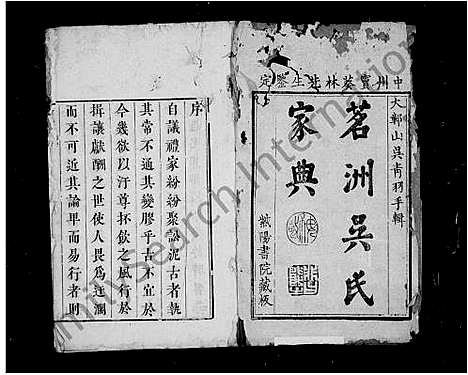 中州竇葵林先生鑒定
大鄣山吳青羽手輯
茗洲吳氏
家典
紫陽書院藏板
序
自議禮家紛紛聚訟泥古者執
其常不通其變膠乎古不宜於
今幾欲以汙尊杯飲之風行於
揖讓獻酬之世使人畏為迂濶
而不可近其論卑而易行者則
FamilySearch International